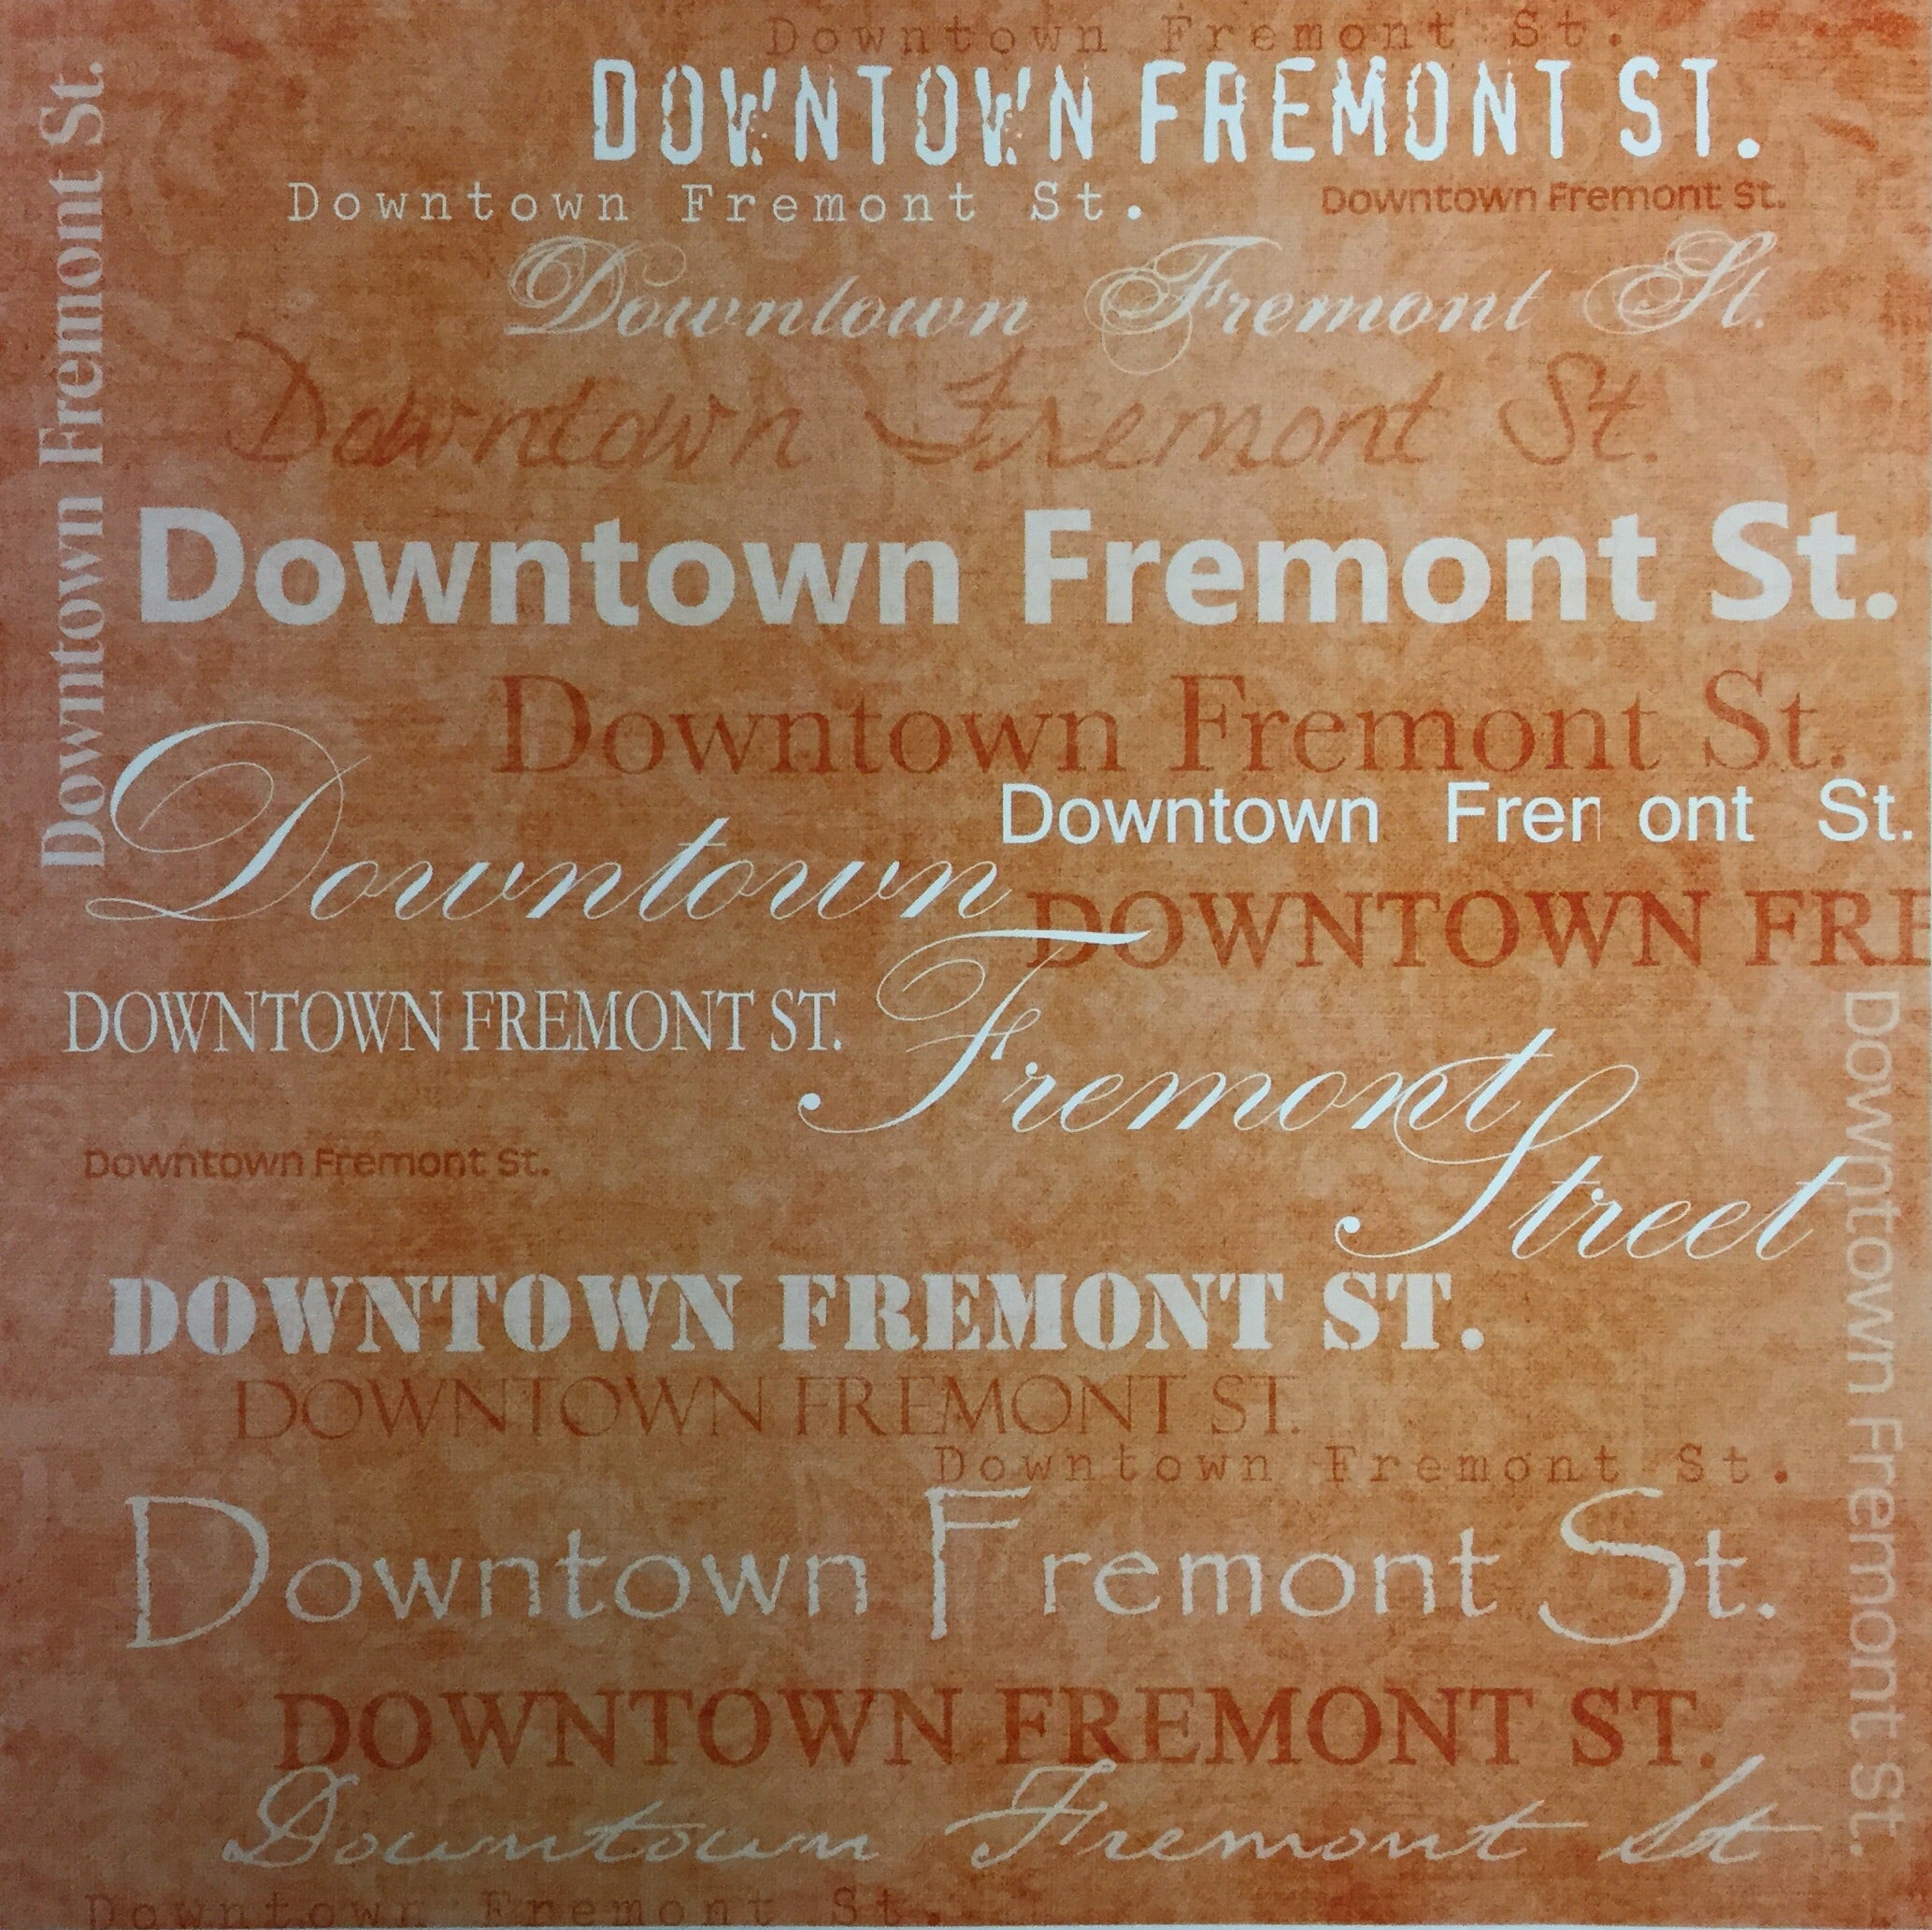 Downtown Fremont St.
DOWNTOWN FREMONT ST.
Downtown Fremont St.
Downtown Fremont St.
Downtown Fremont St.
Downtown Fremont St.
Downtown Fremont St.
Downtown Fremont St.
Downtown Fremont St.
Downtown Frem ont St.
Downtown
DOWNTOWN FRE
DOWNTOWN FREMONT ST.
Fremont
Downtown Fremont St.
Street
Downtown Fremont St.
DOWNTOWN FREMONT ST.
DOWNTOWN FREMONT ST.
Downtown Fremont St.
Downtown Fremont St.
DOWNTOWN FREMONT ST.
Downtown Fremont St
Downtown Fremont St.